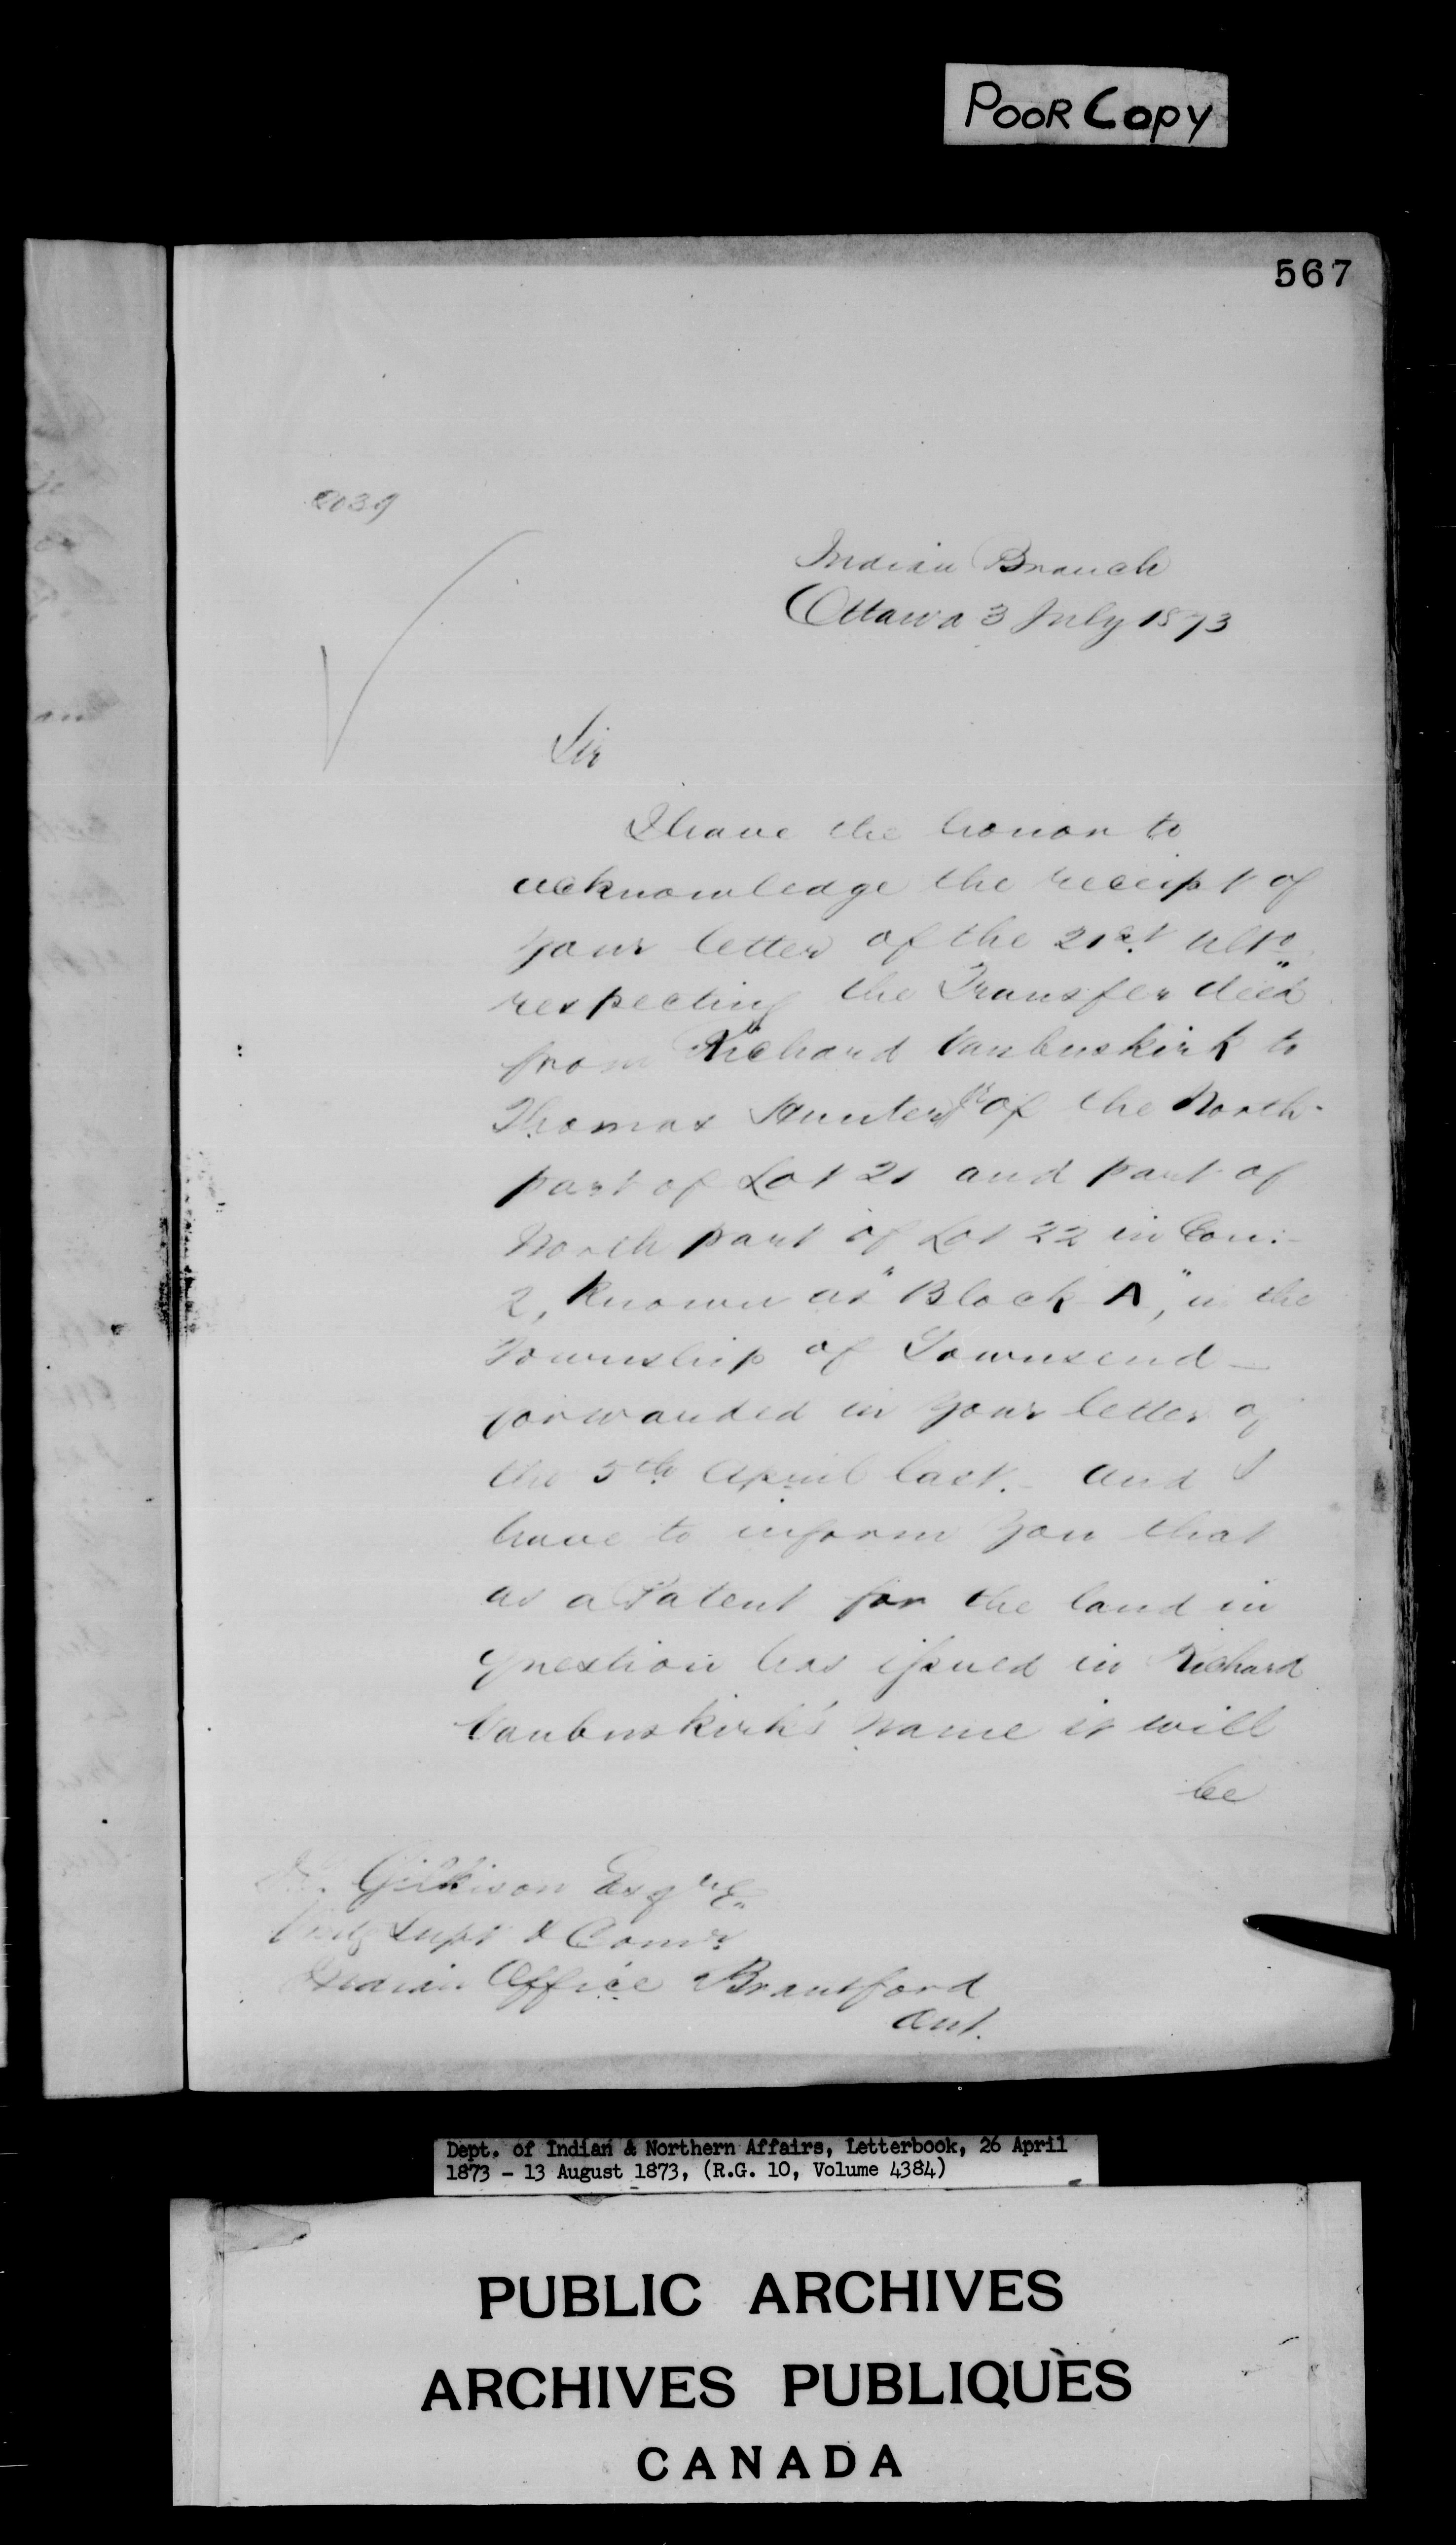 POOR COPY
567
2039
Indian Branch
Ottawa 3 July 1873
Sir
I have the honor to
acknowledge the receipt of
your letter of the 21st. Ulto.
respecting the Transfer deed
from Richard Vanbuskirk to
Thomas Hunter Jr of the North
part of Lot 21 and part of
North part of Lot 22 in Con:
2, known as "Block A", in the
Township of Townsend —
forwarded in your letter of
the 5th April last. - and I
have to inform you that
as a Patent for the land in
question has issued in Richard
Vanbuskirk's name it will
be
Gilkison Esqre
Supt & Comr.
Indian Office Brantford
Ont.
Dept. of Indian & Northern Affairs, Letterbook, 26 April
1873 - 13 August 1873, (R.G. 10, Volume 4384)
PUBLIC ARCHIVES
ARCHIVES PUBLIQUES
CANADA